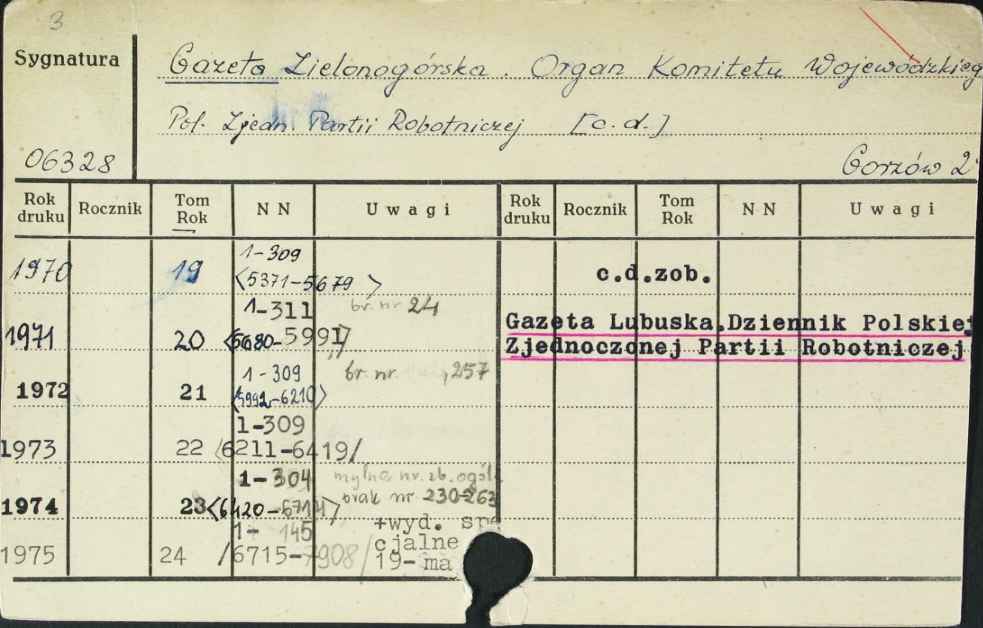 3
Sygnatura
Gazeta Zielonogórska. Organ Komitetu Wojewódzkieg
Pol. Zjedn. Partii Robotniczej [c.d.]
06328
Gorzów 2
Rok druku Rocznik Tom Rok NN Uwagi Rok druku Rocznik Tom Rok NN Uwagi
1970 19 1-309
<5371-5679> c.d.zob.
1-311 br. nr 24
1971 20 <5680-5991> Gazeta Lubuska.Dziennik Polskiej
Zjednoczonej Partii Robotniczej
1-309 br. nr 257
1972 21 <5992-6210>
1-309
1973 22 <6211-6419/
1-304 mylna nr. zb. ogól.
1974 23 <6420-6714> brak nr 230-263
1- 145 +wyd. spe
cjalne
1975 24 /6715-7908/ 19- ma